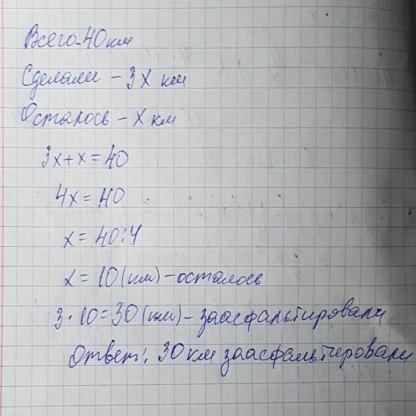 Всего - 40 км
Сделали - 3x км
Осталось - x км
3x + x = 40
4x = 40
x = 40:4
x = 10 (км) - осталось
3 · 10 = 30 (км) - заасфальтировали
Ответ: 30 км заасфальтировали